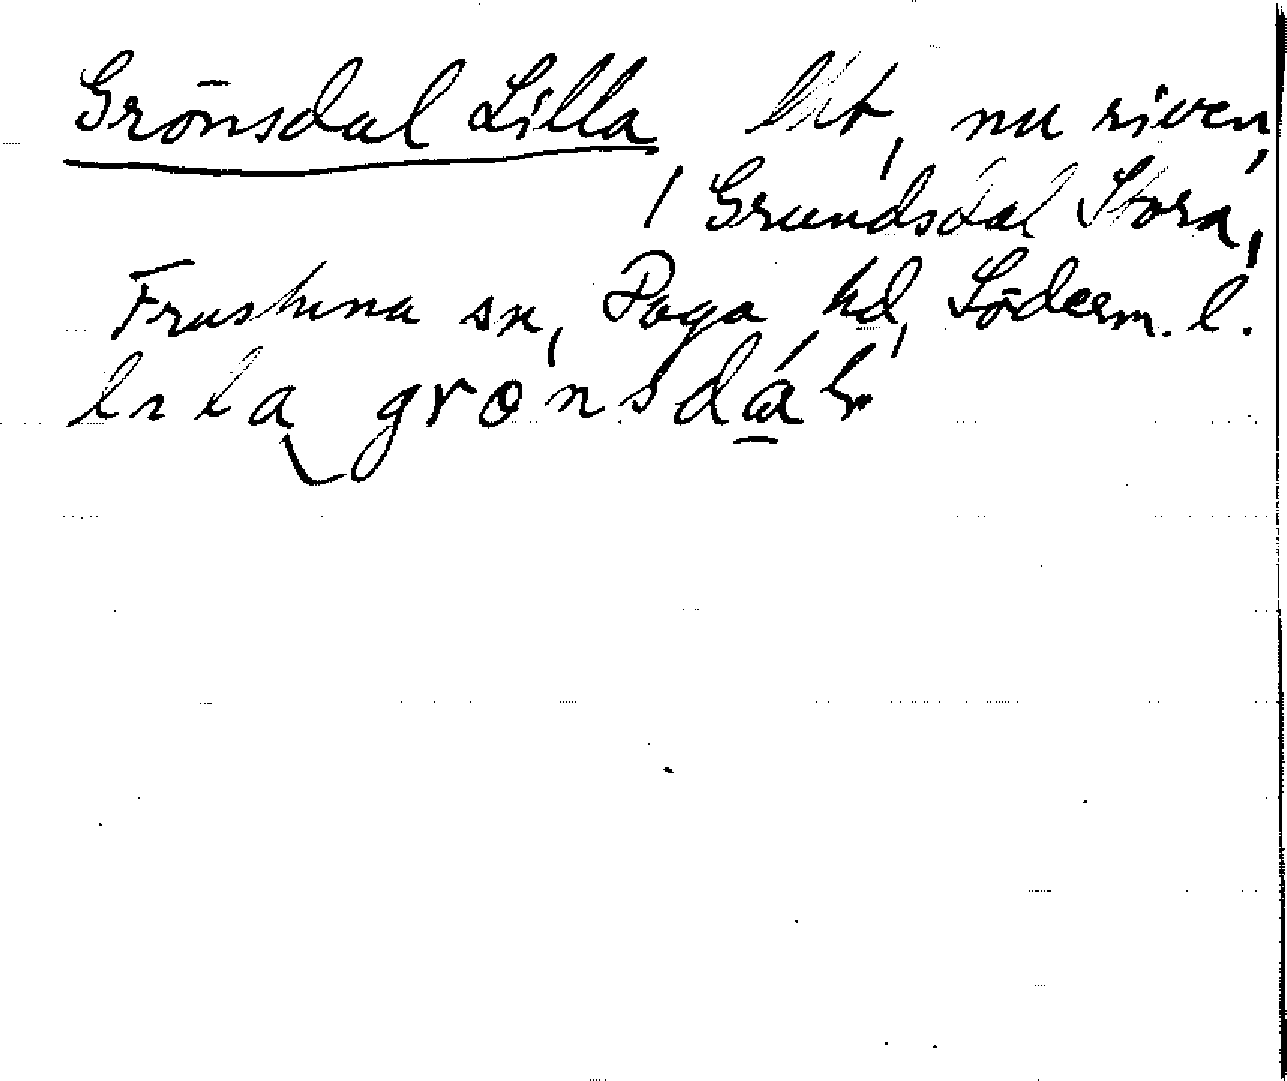 Grönsdal Lilla lht, nu riven,
/ Grundsdal Stora,
Frustuna sn, Daga hd, Söderm. l.
lila grönsdál